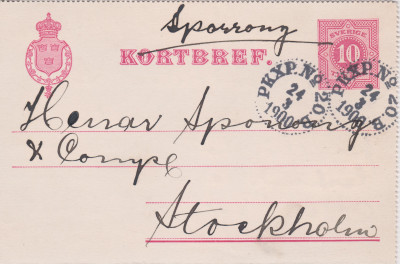 Sporrong
KORTBREF.
SVERIGE
10
PKXP. No 20. B.
24
3
1900
PKXP. No 20. B.
24
3
1900
Herrar Sporrong
& Comp.
Stockholm